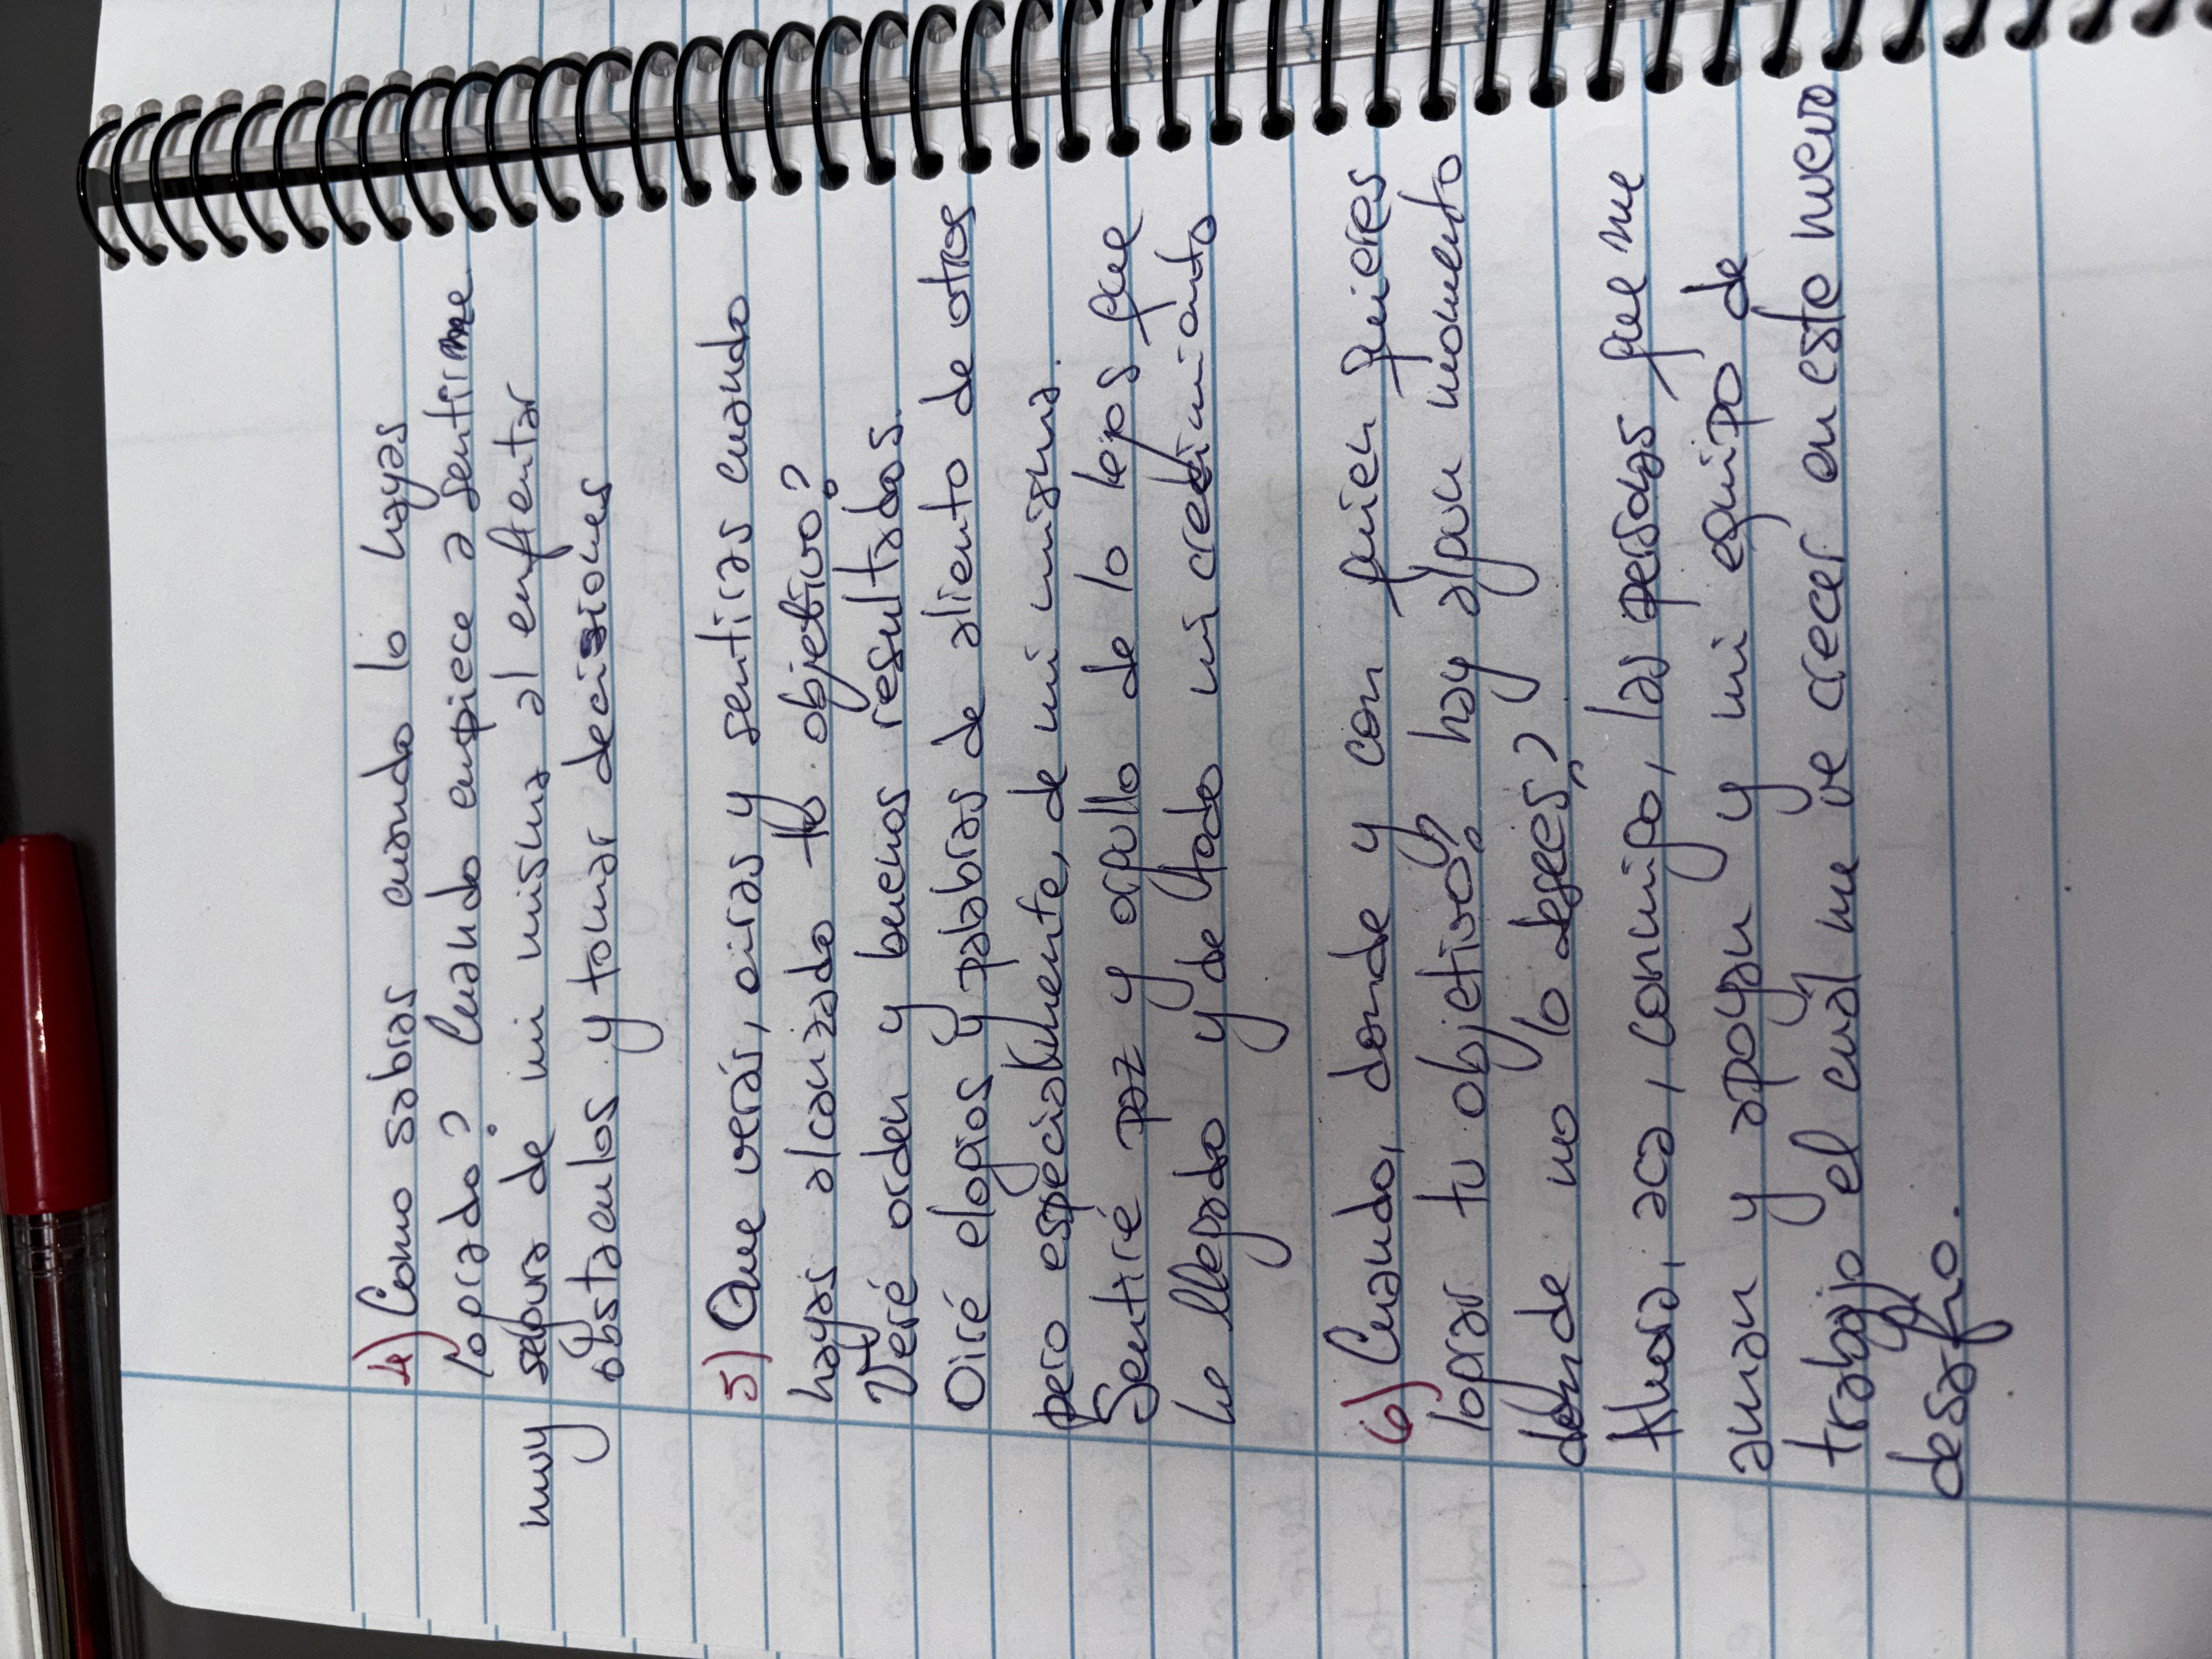 4) Como sabras cuando lo hayas
logrado? Cuando empiece a sentirme
muy segura de mi misma al enfrentar
obstaculos y tomar decisiones
5) Que verás, oiras y sentiras cuando
hayas alcanzado tu objetivo?
Veré orden y buenos resultados.
Oiré elogios y palabras de aliento de otros
pero especialmente, de mi misma.
Sentiré paz y orgullo de lo lejos que
he llegado y de todo mi crecimiento
6) Cuando, donde y con quien quieres
lograr tu objetivo? hay algun momento
donde no lo desees?
Ahora, aca, conmigo, las personas que me
aman y apoyan y mi equipo de
trabajo el cual me ve crecer en este nuevo
desafio.